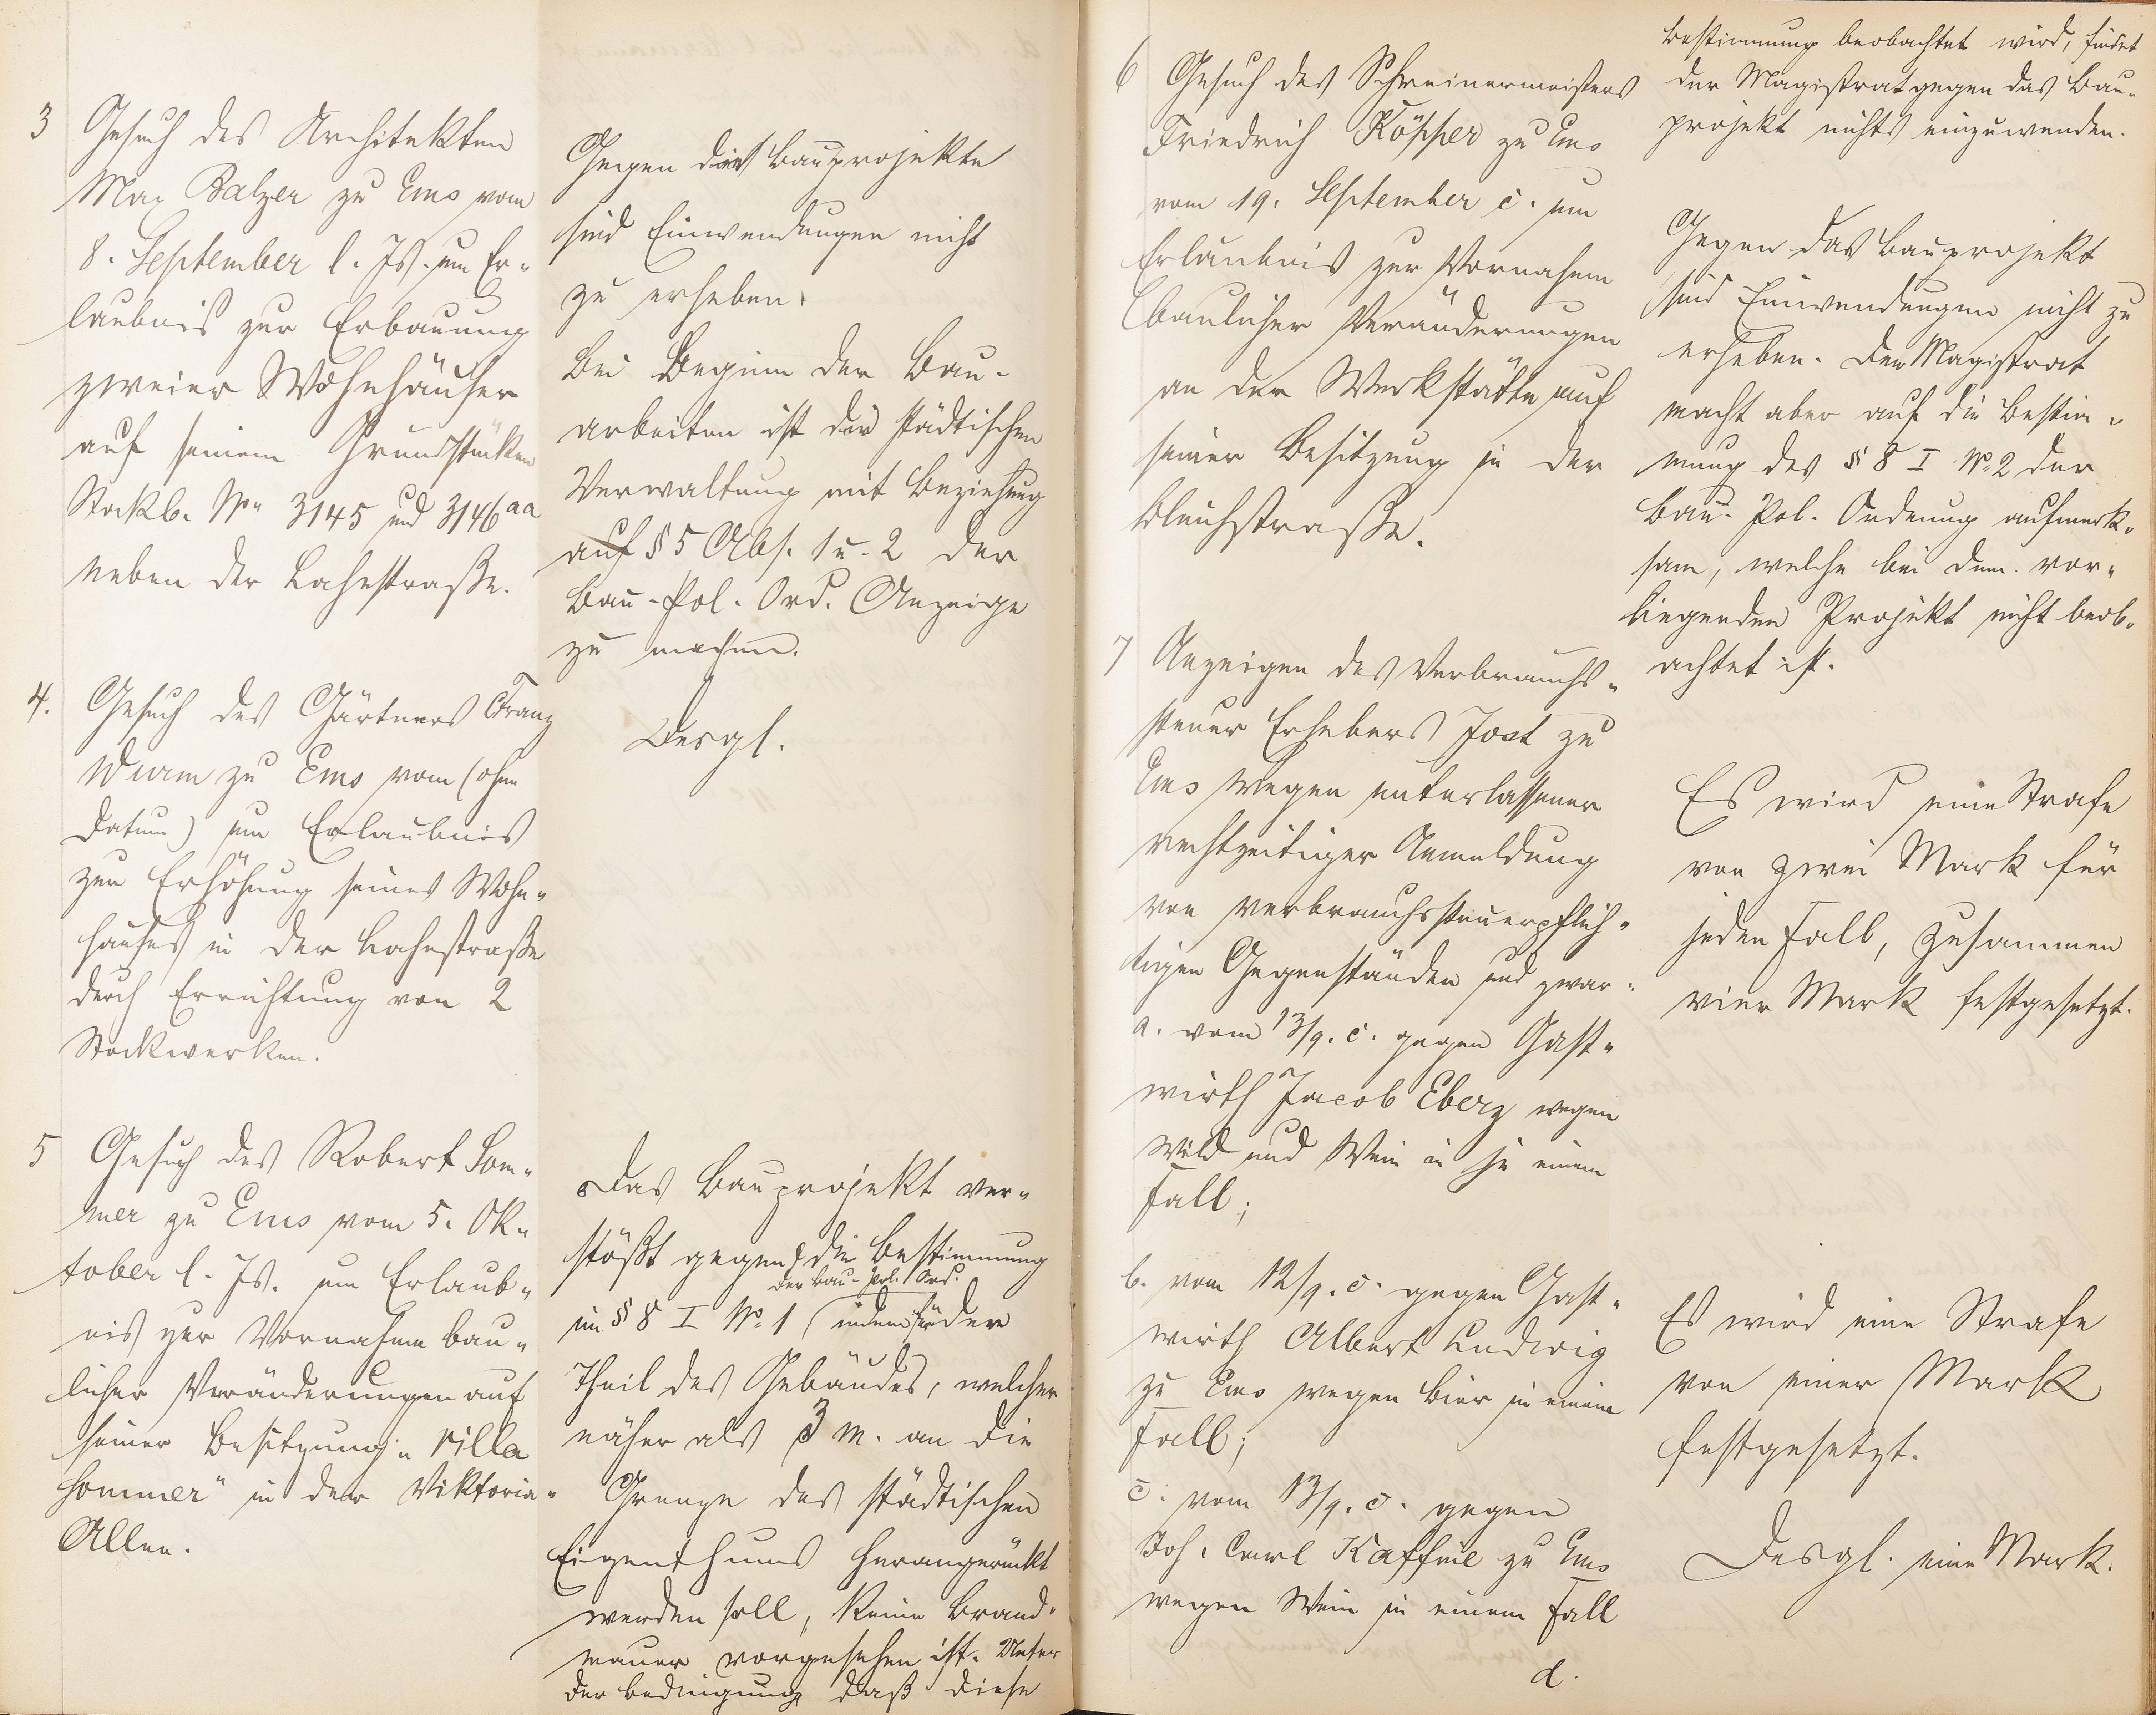 3 Gesuch des Architekten
Max Balzer zu Ems vom
8. September l. Js. um Er-
laubnis zur Erbauung
zweier Wohnhäuser
auf seinem Grundstücken
Stockb. No 3145 und 3146 aa
neben der Lahnstraße.
Gegen die Bauprojekte
sind Einwendungen nicht
zu erheben.
Bei Beginn der Bau-
arbeiten ist der städtischen
Verwaltung mit Beziehung
auf § 5 Abs. 1 u. 2 der
Bau-Pol. Ord. Anzeige
zu machen.
4. Gesuch des Gärtners Franz
Wurm zu Ems vom (ohne
Datum) um Erlaubnis
zur Erhöhung seines Wohn-
hauses in der Lahnstraße
durch Errichtung von 2
Stockwerken.
Desgl.
5 Gesuch des Robert Som-
mer zu Ems vom 5. Ok-
tober l. Js. um Erlaub-
nis zur Vornahme bau-
licher Veränderungen auf
seiner Besitzung „Villa
Sommer" in der Viktoria-
Allee.
Das Bauprojekt ver-
stößt gegen die Bestimmung
der Bau-Pol. Ord.
im § 8 I No. 1 indem für den
Theil des Gebäudes, welcher
näher als 3 m. an die
Grenze des städtischen
Eigenthums herangerückt
werden soll, keine Brand-
mauer vorgesehen ist. Unter
der Bedingung daß diese
Bestimmung beobachtet wird, findet
der Magistrat gegen das Bau-
projekt nichts einzuwenden.
6 Gesuch des Schreinermeisters
Friedrich Köpper zu Ems
vom 19. September c. um
Erlaubnis zur Vornahem
baulicher Veränderungen
an der Werkstätte auf
seiner Besitzung in der
Bleichstraße.
Gegen das Bauprojekt
sind Einwendungen nicht zu
erheben. Der Magistrat
macht aber auf die Bestim-
mung des § 8 I No. 2 der
Bau-Pol.-Ordnung aufmerk-
sam, welche bei dem vor-
liegenden Projekt nicht beob-
achtet ist.
7 Anzeigen des Verbrauchs-
steuer Erhebers Jost zu
Ems wegen unterlassener
rechtzeitiger Anmeldung
von verbrauchssteuerpflich-
tigen Gegenständen und zwar:
a. vom 13/9. c. gegen Gast-
wirth Jacob Eberz wegen
Wild und Wein in je einem
Fall;
Es wird eine Strafe
von zwei Mark für
jeden Fall, zusammen
vier Mark festgesetzt.
b. vom 12/9. c. gegen Gast-
wirth Albert Ludwig
zu Ems wegen Bier in einem
Fall;
Es wird eine Strafe
von einer Mark
festgesetzt.
c. vom 13/9. c. gegen
Joh. Carl Kaffine zu Ems
wegen Wein in einem Fall
Desgl. eine Mark.
d.